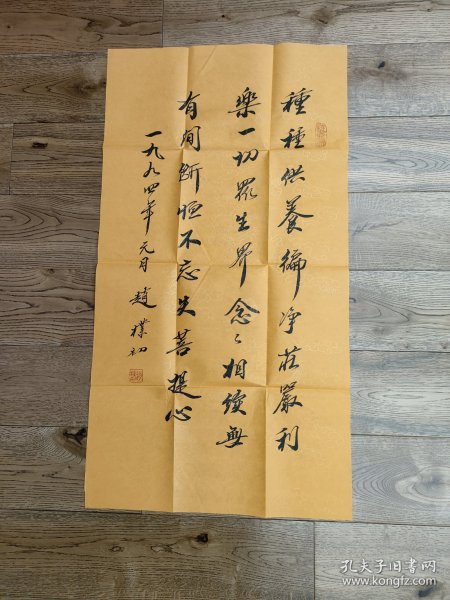 種種供養徧净莊嚴利
樂一切眾生界念念相續無
有間斷恒不忘失菩提心
一九九四年元月趙樸初
孔夫子旧书网
www.kongfz.com